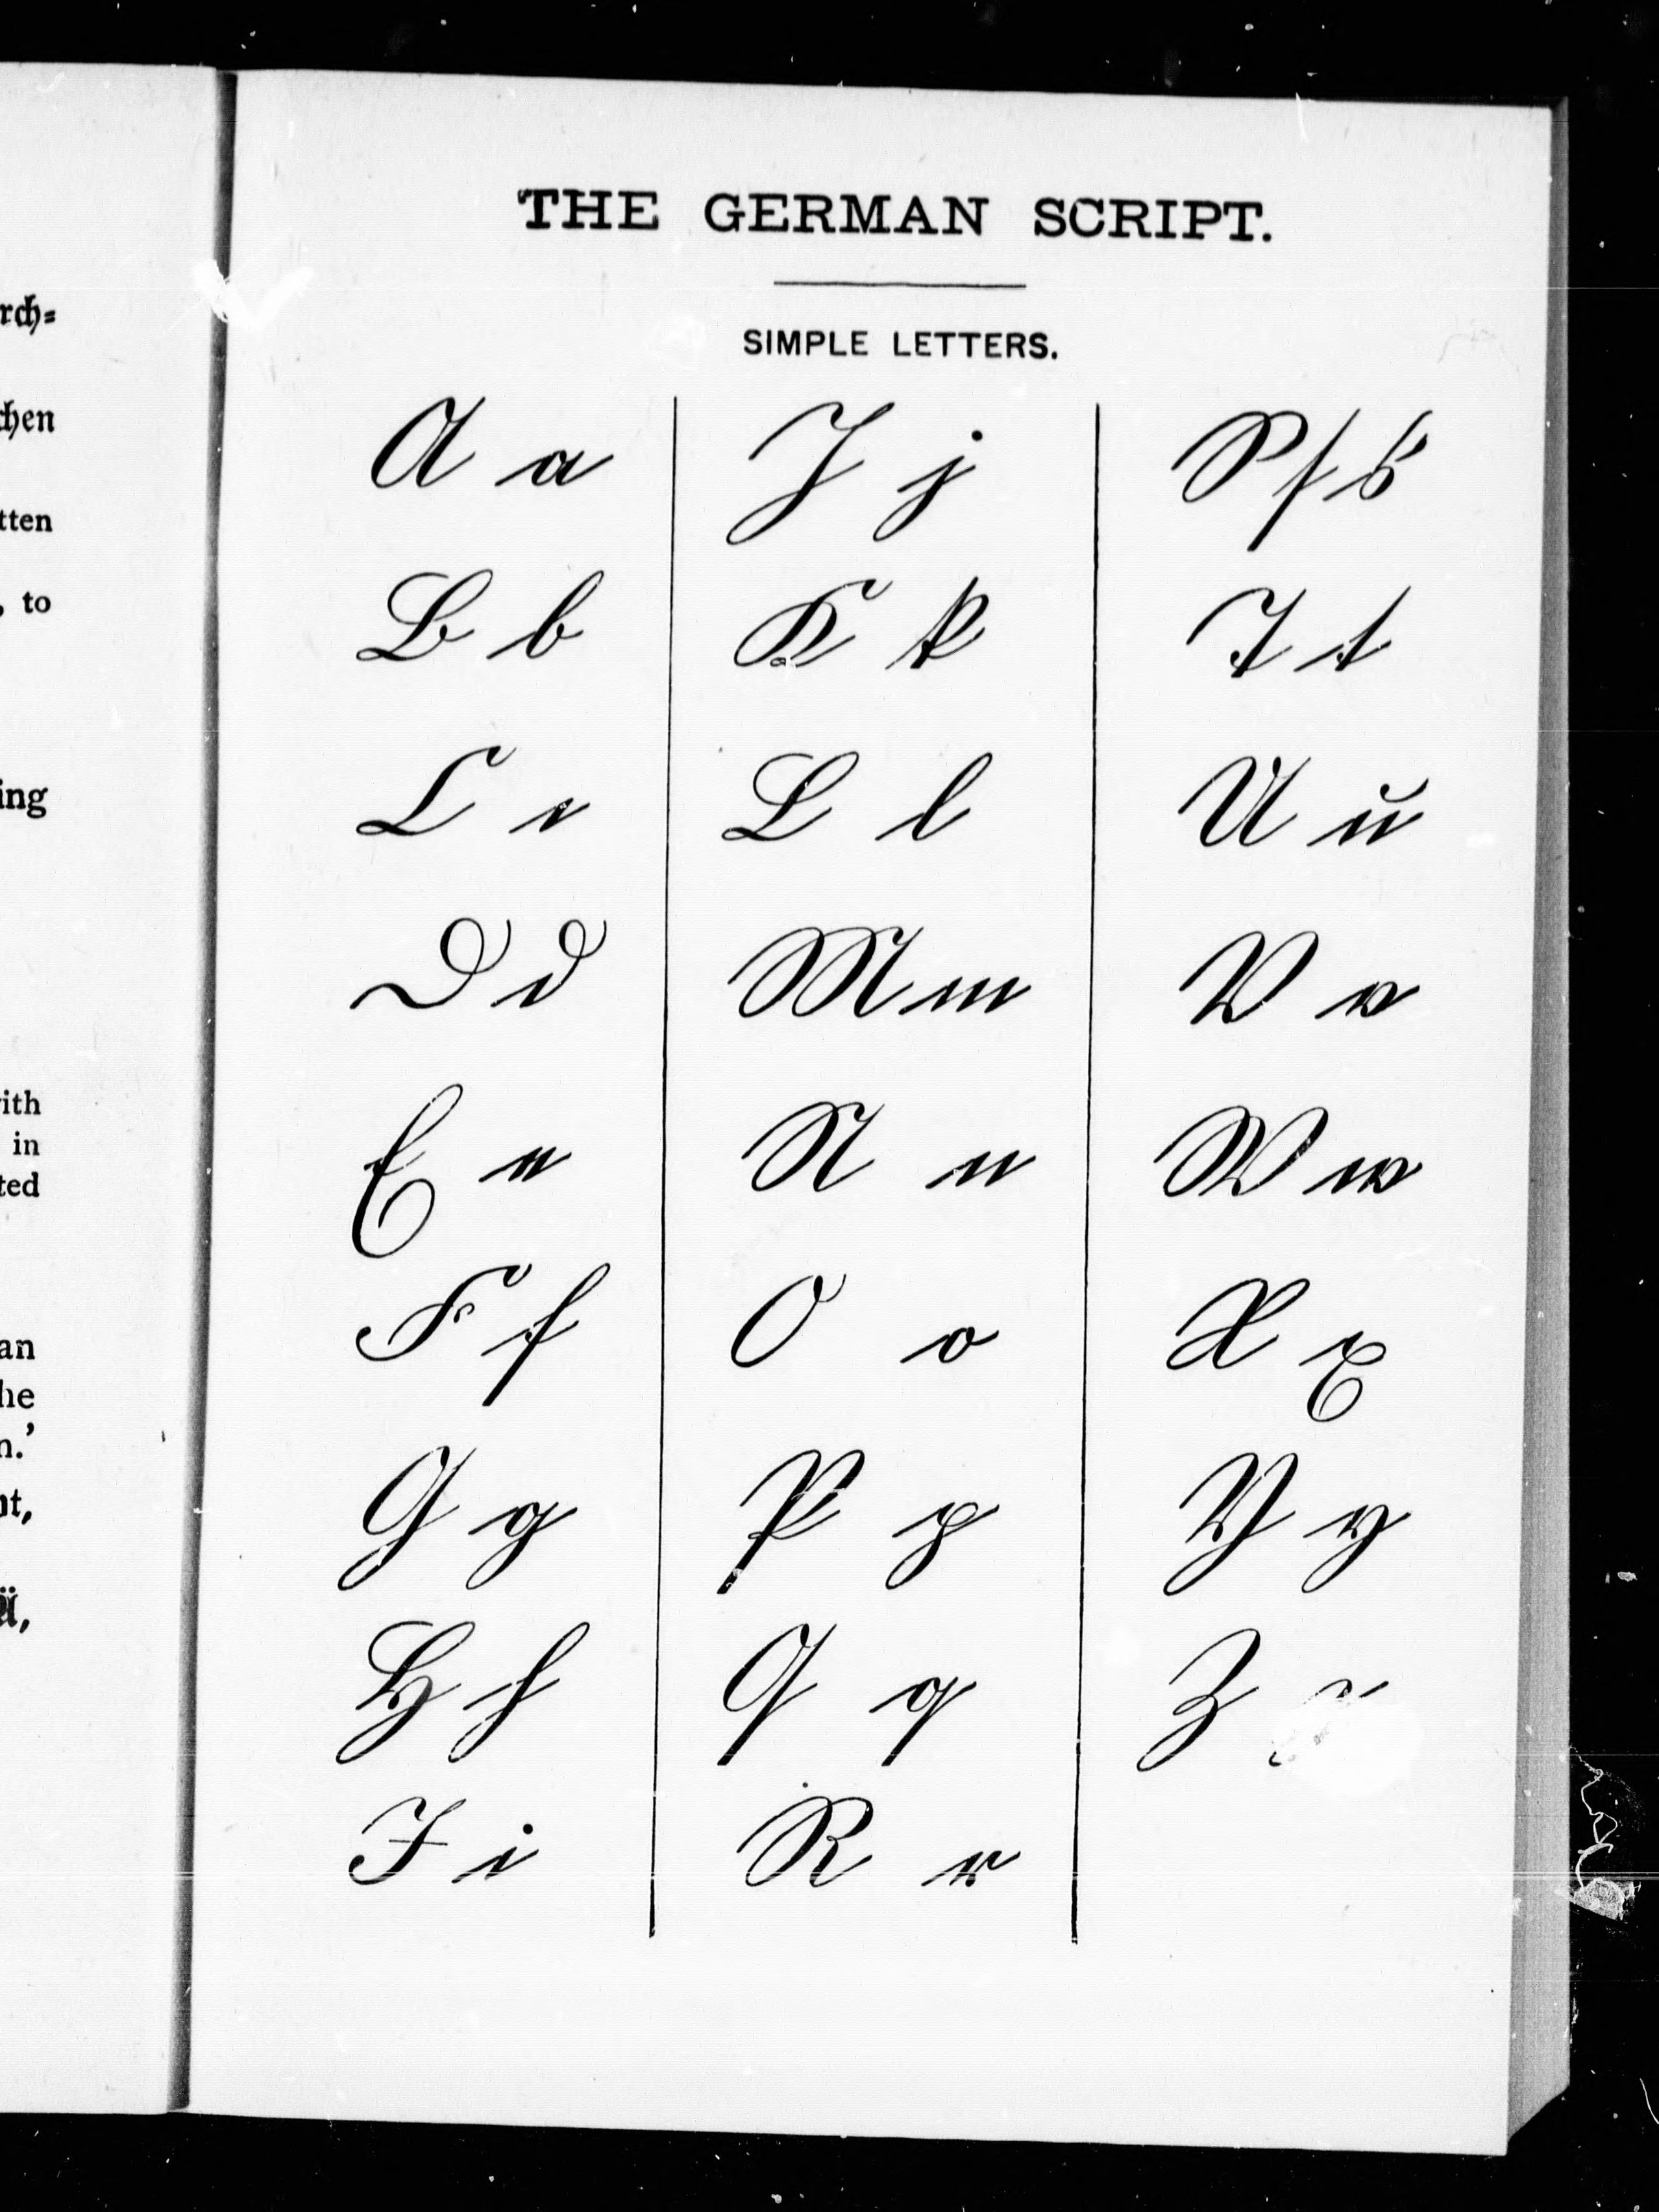 rch=
chen
tten
, to
ing
ith
in
ted
an
he
n.'
nt,
Ü,
THE GERMAN SCRIPT.
SIMPLE LETTERS.
A a
B b
C c
D d
E e
F f
G g
H h
I i
J j
K k
L l
M m
N n
O o
P p
Q q
R r
S ſ s
T t
U u
V v
W w
X x
Y y
Z